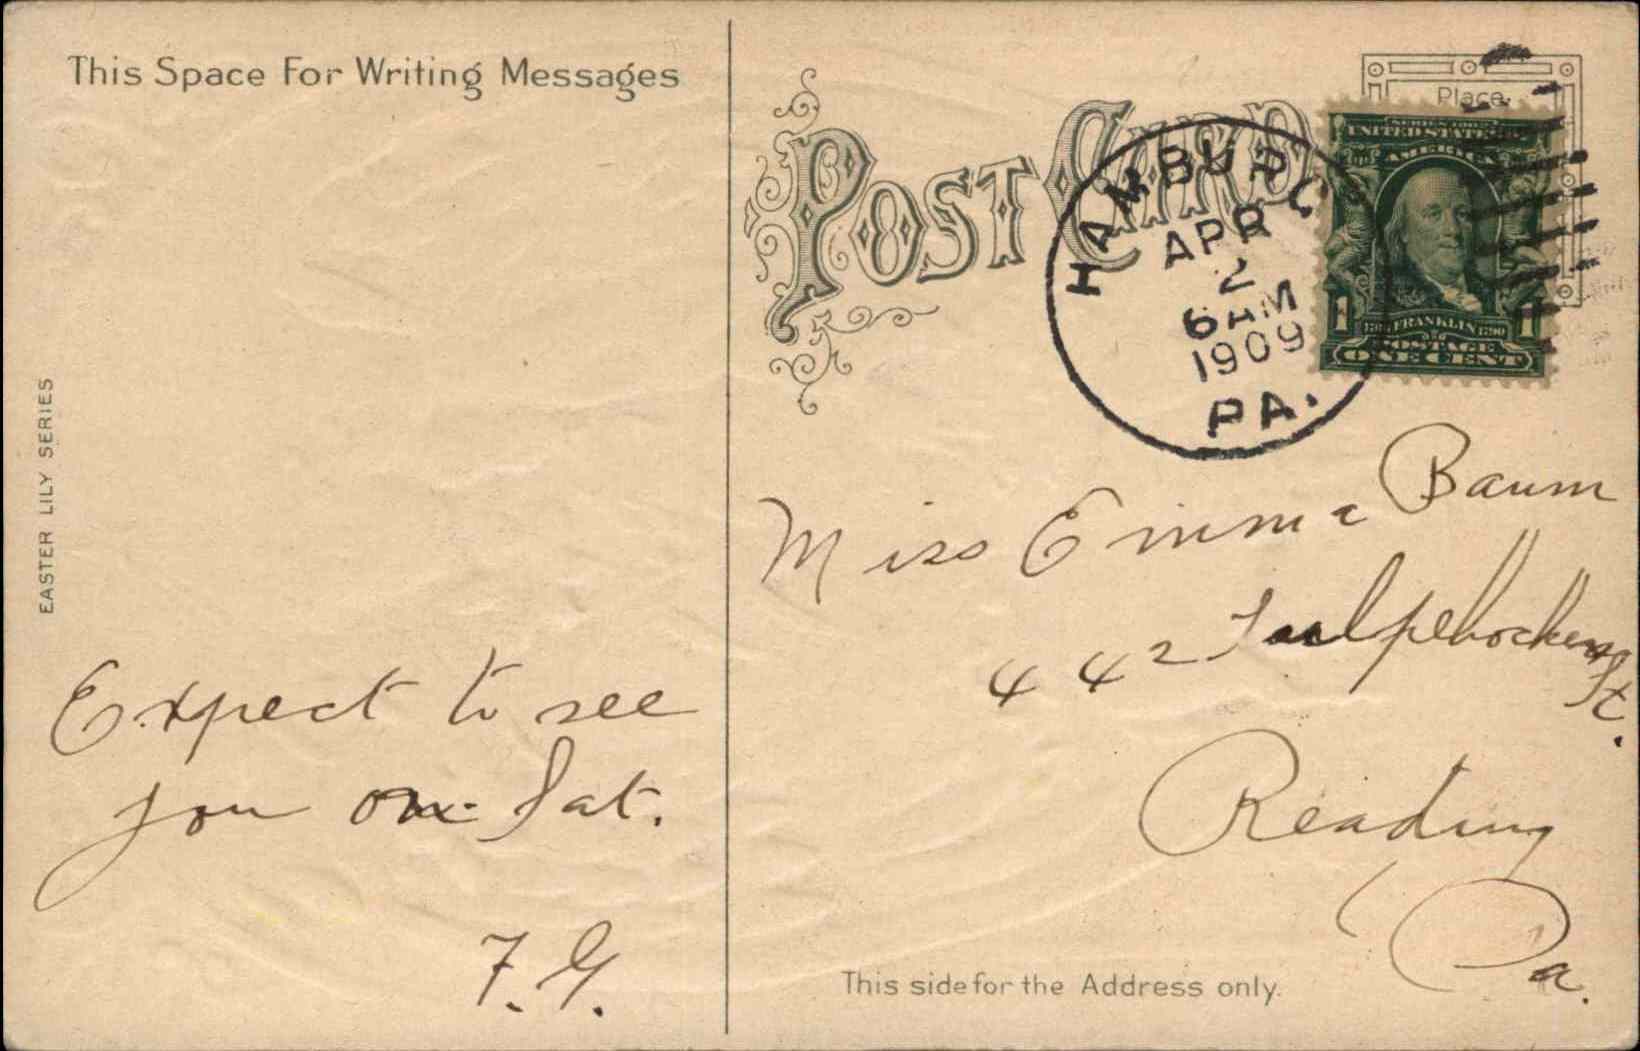 This Space For Writing Messages
EASTER LILY SERIES
Expect to see
you on Sat.
F. G.
POST CARD
Place
HAMBURG
APR
2
6 AM
1909
PA.
SERIES 1902
UNITED STATES OF
AMERICA
1 1
1706 FRANKLIN 1790
POSTAGE
ONE CENT
Miss Emma Baum
442 Tulpehocken
St.
Reading
Pa.
This side for the Address only.